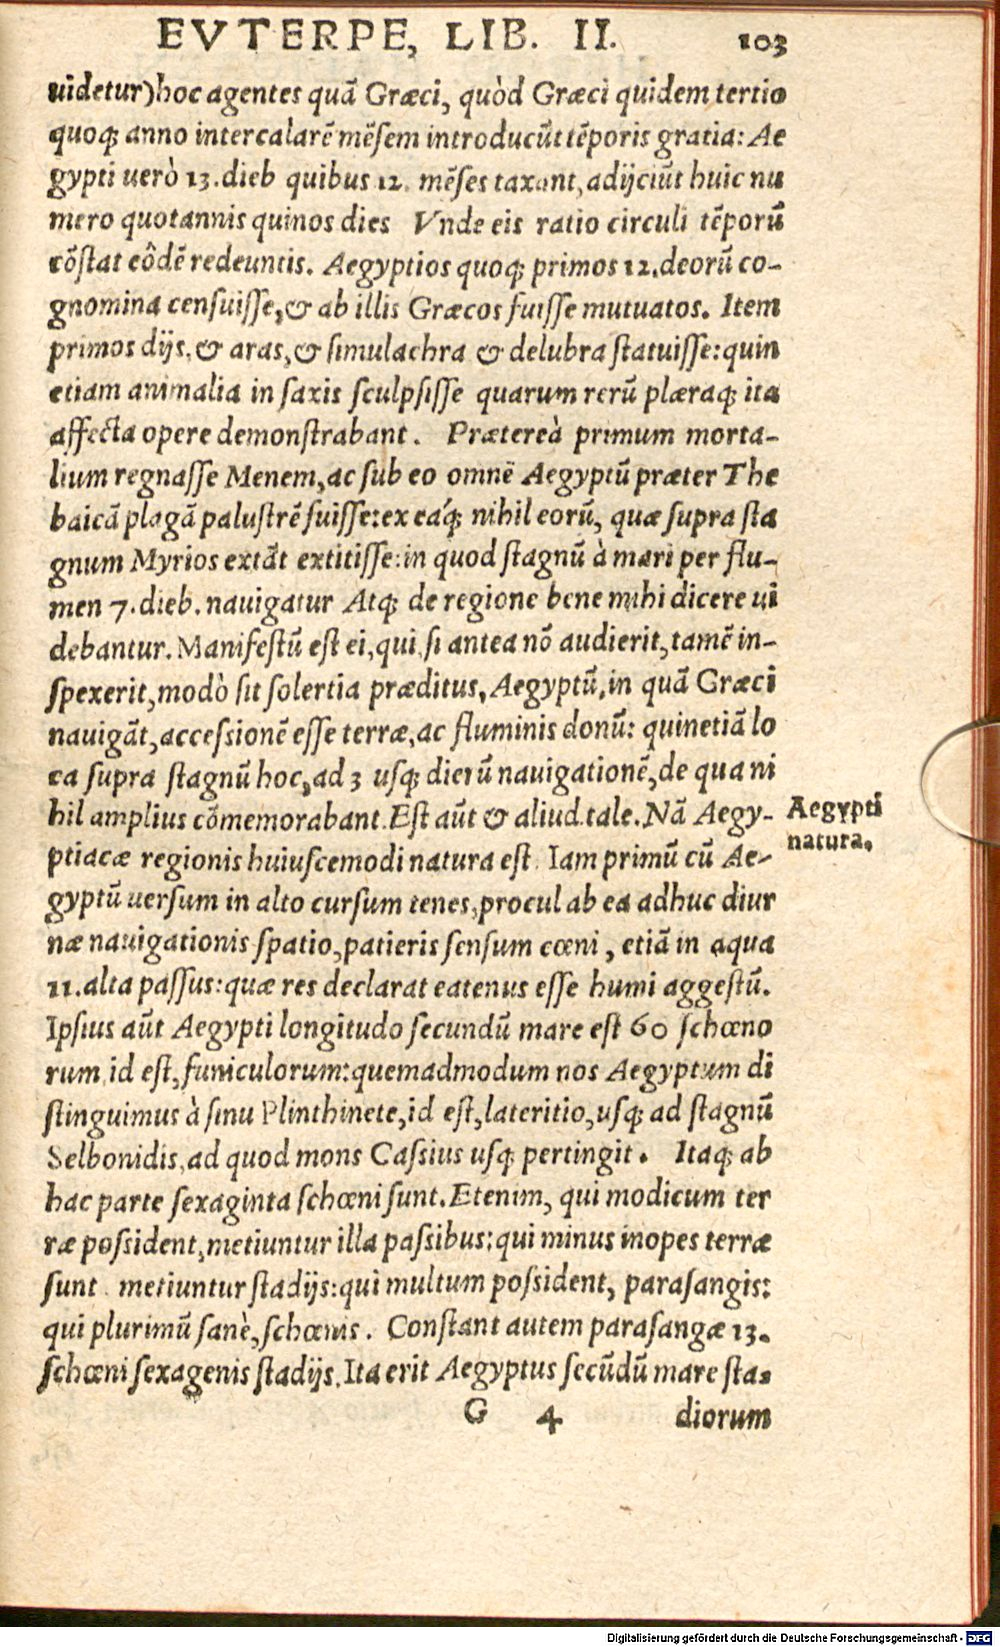 EVTERPE, LIB. II. 103
uidetur) hoc agentes quã Græci, quòd Græci quidem tertio
quoq; anno intercalarẽ mẽsem introducũt tẽporis gratia: Ae
gypti uerò 13. dieb quibus 12. mẽses taxant, adijciũt huic nu
mero quotannis quinos dies Vnde eis ratio circuli tẽporũ
cõstat eôdẽ redeuntis. Aegyptios quoq; primos 12. deorũ co-
gnomina censuisse, & ab illis Græcos fuisse mutuatos. Item
primos dijs, & aras, & simulachra & delubra statuisse: quin
etiam animalia in saxis sculpsisse quarum rerũ plæraq; ita
affecta opere demonstrabant. Prætereà primum morta-
lium regnasse Menem, ac sub eo omnẽ Aegyptũ præter The
baicã plagã palustrẽ fuisse: ex eáq; nihil eorũ, quæ supra sta
gnum Myrios extãt extitisse: in quod stagnũ à mari per flu-
men 7. dieb. nauigatur Atq; de regione bene mihi dicere ui
debantur. Manifestũ est ei, qui, si antea nõ audierit, tamẽ in-
spexerit, modò sit solertia præditus, Aegyptũ, in quã Græci
nauigãt, accessionẽ esse terræ, ac fluminis donũ: quinetiã lo
ca supra stagnũ hoc, ad 3 usq; dierũ nauigationẽ, de qua ni
hil amplius cõmemorabant. Est aũt & aliud tale. Nã Aegy-
ptiacæ regionis huiuscemodi natura est. Iam primũ cũ Ae-
gyptũ uersum in alto cursum tenes, procul ab ea adhuc diur
næ nauigationis spatio, patieris sensum cœni, etiã in aqua
11. alta passus: quæ res declarat eatenus esse humi aggestũ.
Ipsius aũt Aegypti longitudo secundũ mare est 60 schœno
rum, id est, funiculorum: quemadmodum nos Aegyptum di
stinguimus à sinu Plinthinete, id est, lateritio, usq; ad stagnũ
Selbonidis, ad quod mons Cassius usq; pertingit. Itaq; ab
hac parte sexaginta schœni sunt. Etenim, qui modicum ter
ræ possident, metiuntur illa passibus: qui minus inopes terræ
sunt metiuntur stadijs: qui multum possident, parasangis:
qui plurimũ sanè, schœnis. Constant autem parasangæ 13.
schœni sexagenis stadijs. Ita erit Aegyptus secũdũ mare sta-
G 4 diorum
Aegypti
natura.
Digitalisierung gefördert durch die Deutsche Forschungsgemeinschaft - DFG